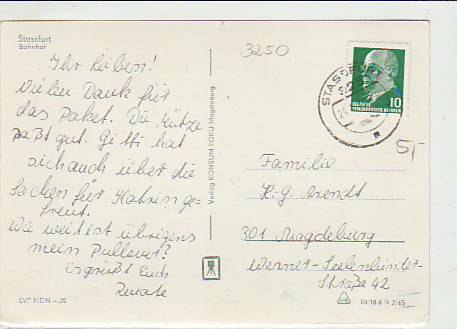 Stassfurt
Bahnhof
3250
Ihr Lieben!
Vielen Dank für
das Paket. Die Mütze
paßt gut. Gitti hat
sich auch über die
Sachen für Katrin ge-
freut.
Wie weit ist übrigens
mein Pullover?
Es grüßt Euch
Renate
EVP MDN -,20
Verlag KONSUM FOKU Magdeburg
STASSFURT
10
DEUTSCHE
DEMOKRATISCHE REPUBLIK
5,-
Familie
H.-G. Arendt
301 Magdeburg
Werner-Seelenbinder-
Straße 42